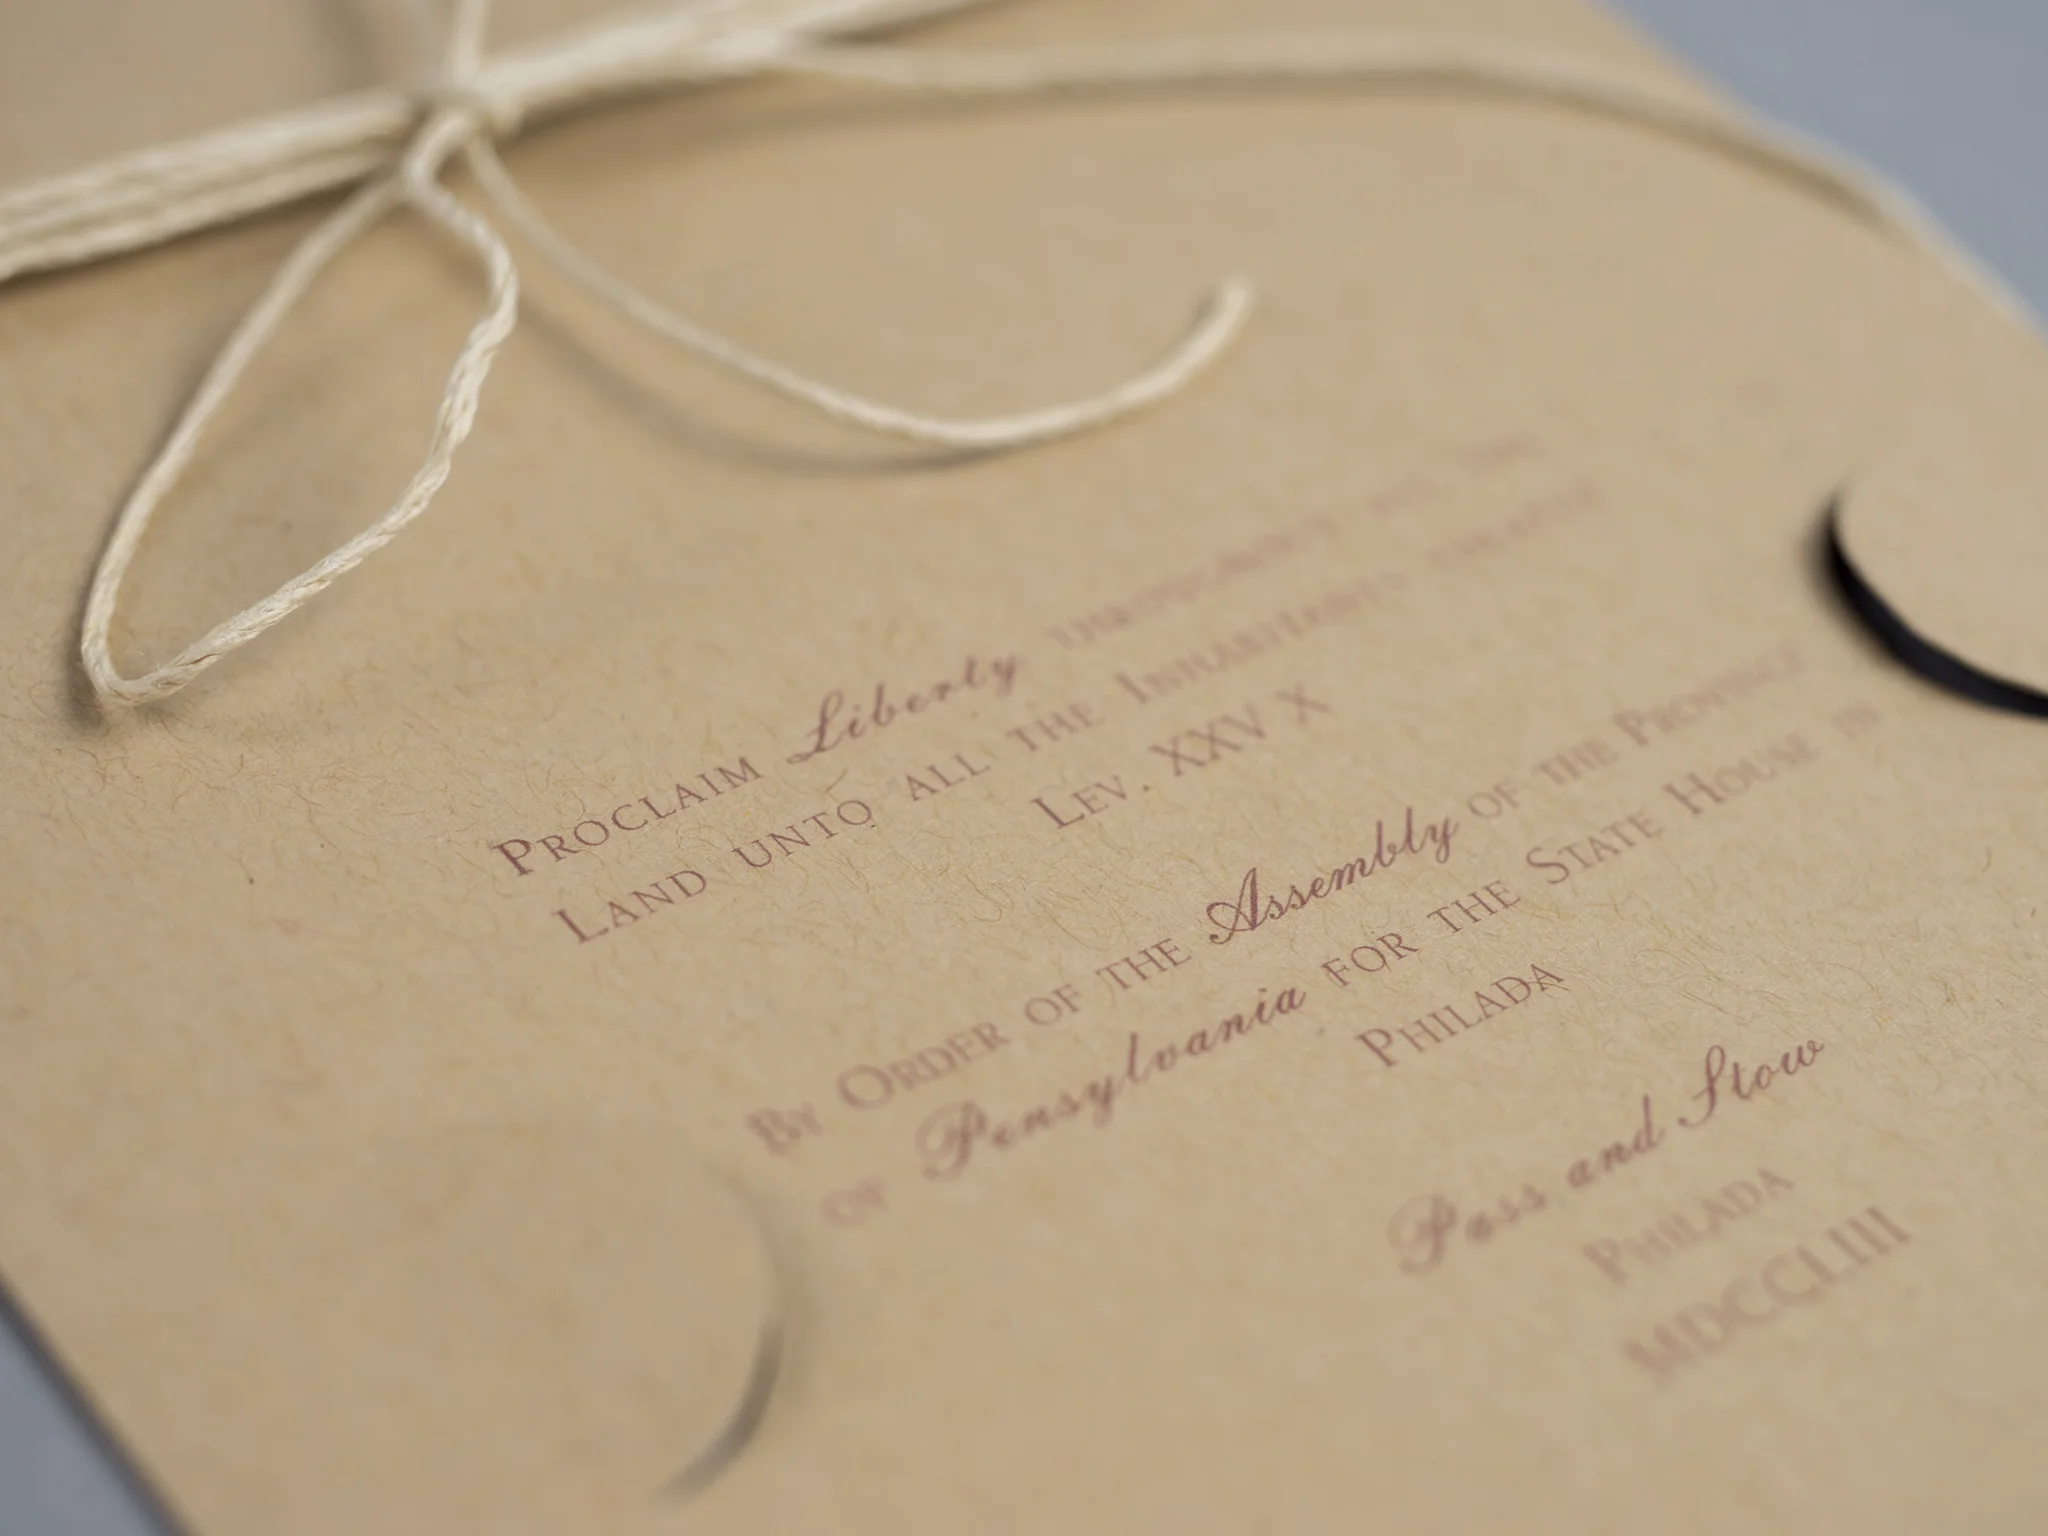 Proclaim Liberty throughout all the
Land unto all the Inhabitants thereof
Lev. XXV X
By Order of the Assembly of the Province
of Pensylvania for the State House in
Philada
Pass and Stow
Philada
MDCCLIII